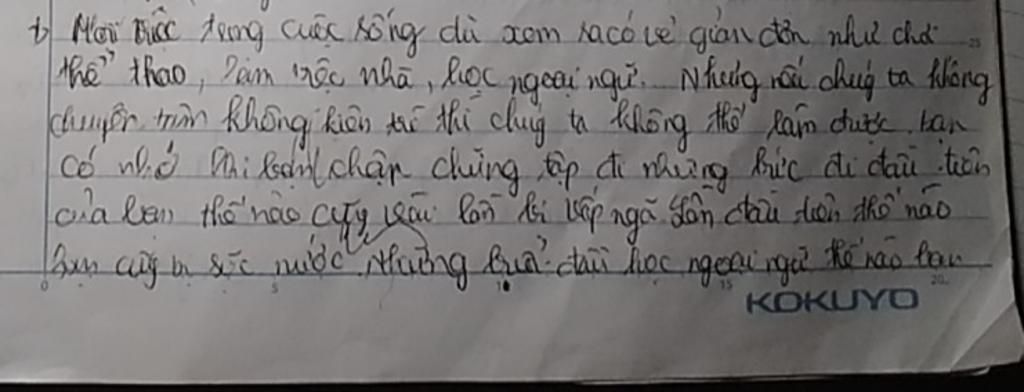 Mọi việc trong cuộc sống dù xem ra có vẻ giản đơn như chơi
thể thao, làm việc nhà, học ngoại ngữ. Nhưng nếu chúng ta không
chuyên tâm không kiên trì thì chúng ta không thể làm được. bạn
có nhớ khi chập chững tập đi những bước đi đầu tiên
của bạn thế nào cũng vấp ngã lần đầu tiên thế nào
bạn cũng bị sặc nước. Những buổi đầu học ngoại ngữ thế nào bạn
0 5 10 15 20
KOKUYO